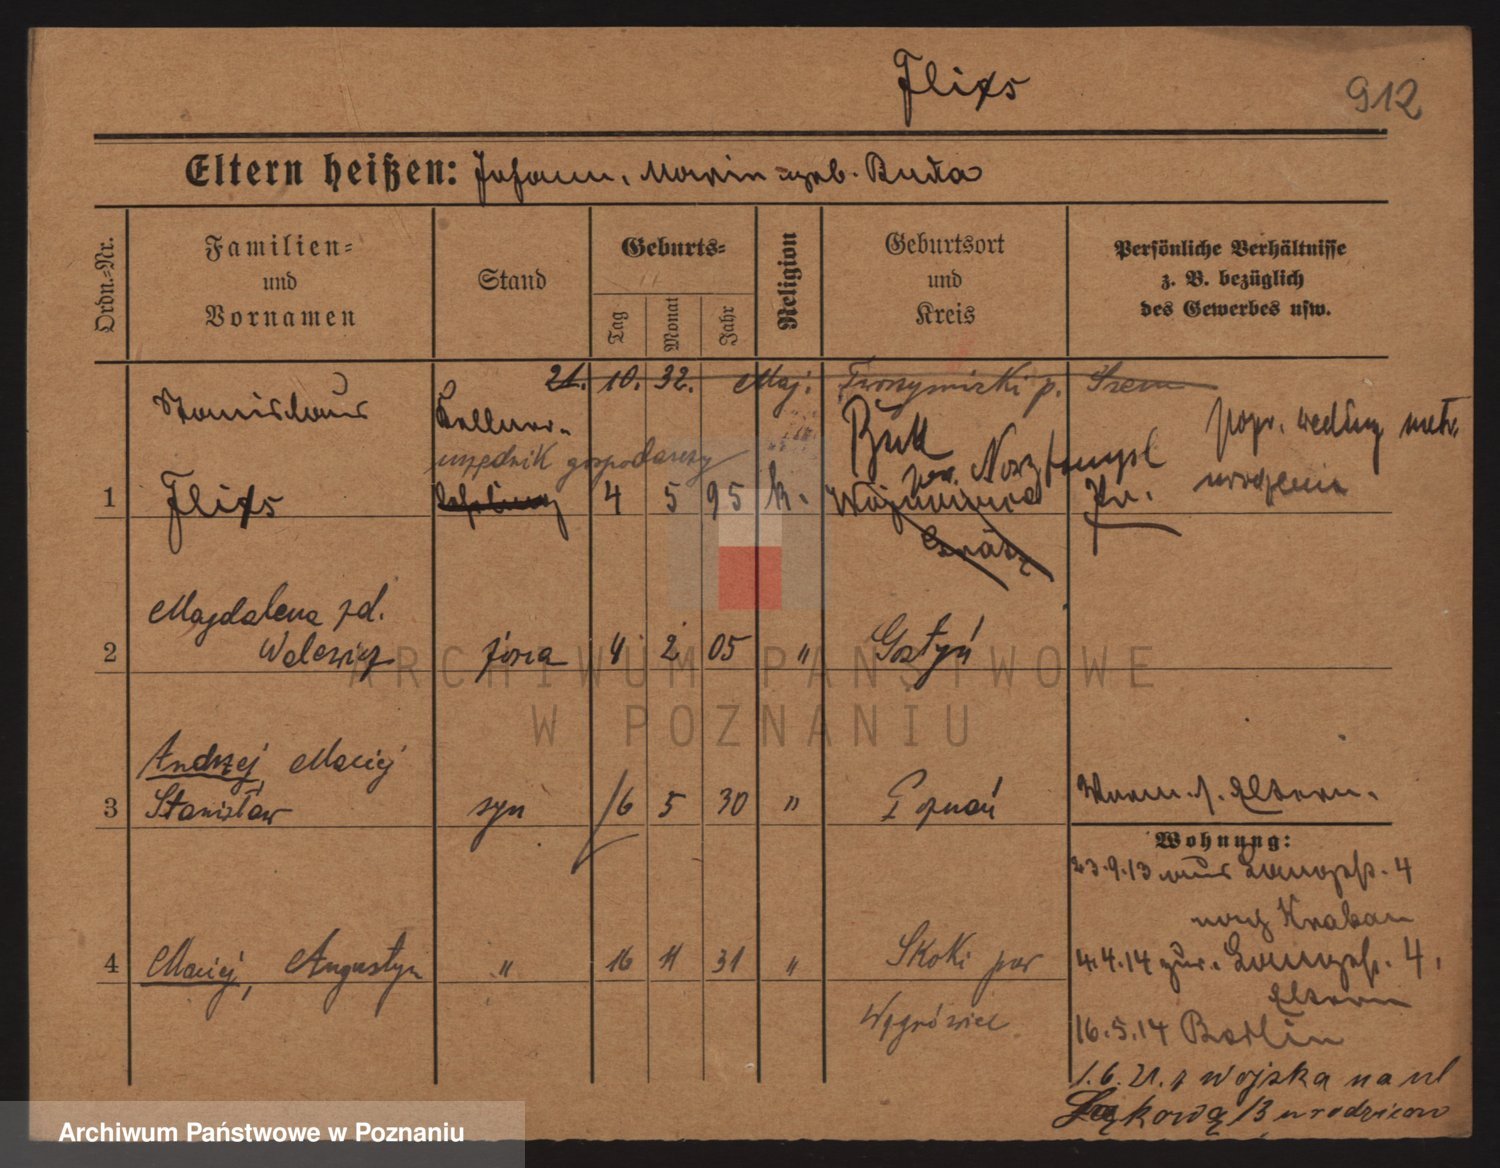 Flixs
912
Eltern heißen: Johann, Maria geb. Buda
Ordn.-Nr.
Familien-
und
Vornamen
Stand
Geburts-
Tag
Monat
Jahr
Religion
Geburtsort
und
Kreis
Persönliche Verhältnisse
z. B. bezüglich
des Gewerbes usw.
21. 10. 32. Maj. p. Srem
Stanislaus Kellner Buk popr. według metr.
urzędnik gospodarczy pow. urodzenia
1 Flixs 4 5 95 k.
Grätz
Magdalena zd.
2 Walewicz żona 4 2 05 " Gostyń
Andrzej, Maciej
3 Stanisław syn 16 5 30 " Poznań
s. Eltern.
Wohnung:
23.9.13 aus 4
nach
4 Maciej, Augustyn " 16 11 31 " Skoki pow
Wągrówiec
4.4.14 zur. 4,
Eltern
16.5.14 Berlin
1.6.21. z wojska na ul
Łąkową 13 u rodziców
ARCHIWUM PAŃSTWOWE
W POZNANIU
Archiwum Państwowe w Poznaniu